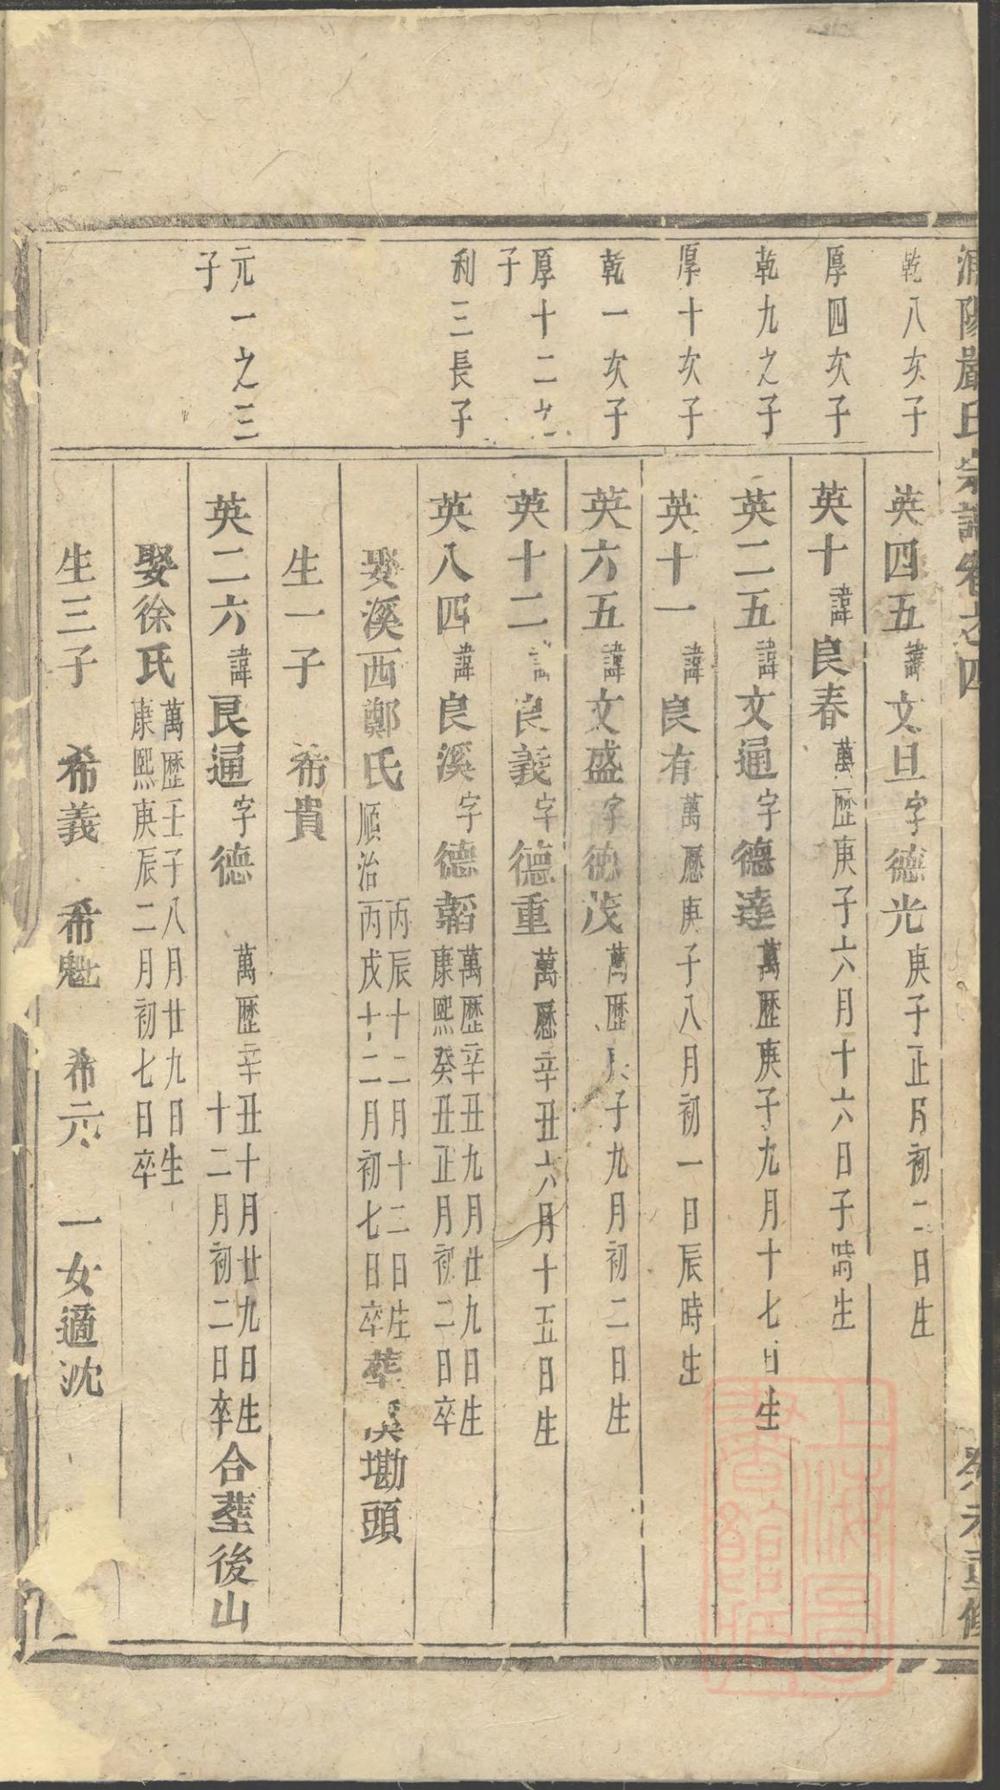 浦陽嚴氏宗譜卷之四
乾八次子
英四五諱文旦字德光庚子正月初二日生
厚四次子
英十諱良春萬歷庚子六月十六日子時生
乾九之子
英二五諱文通字德達萬歷庚子九月十七日生
厚十次子
英十一諱良有萬曆庚子八月初一日辰時生
乾一次子
英六五諱文盛字德茂萬歷庚子九月初二日生
厚十二之子
英十二諱良義字德重萬曆辛丑六月十五日生
利三長子
英八四諱良溪字德韜萬歷辛丑九月廿九日生
康熙癸丑正月初二日卒
娶溪西鄭氏丙辰十二月十二日生
順治丙戌十二月初七日卒葬 塘頭
生一子 希貴
元一之三子
英二六諱良通字德 萬歷辛丑十月廿九日生
十二月初二日卒合塟後山
娶徐氏萬歷壬子八月廿九日生
康熙庚辰二月初七日卒
生三子 希義 希魁 希元 一女適沈
上海圖書館藏